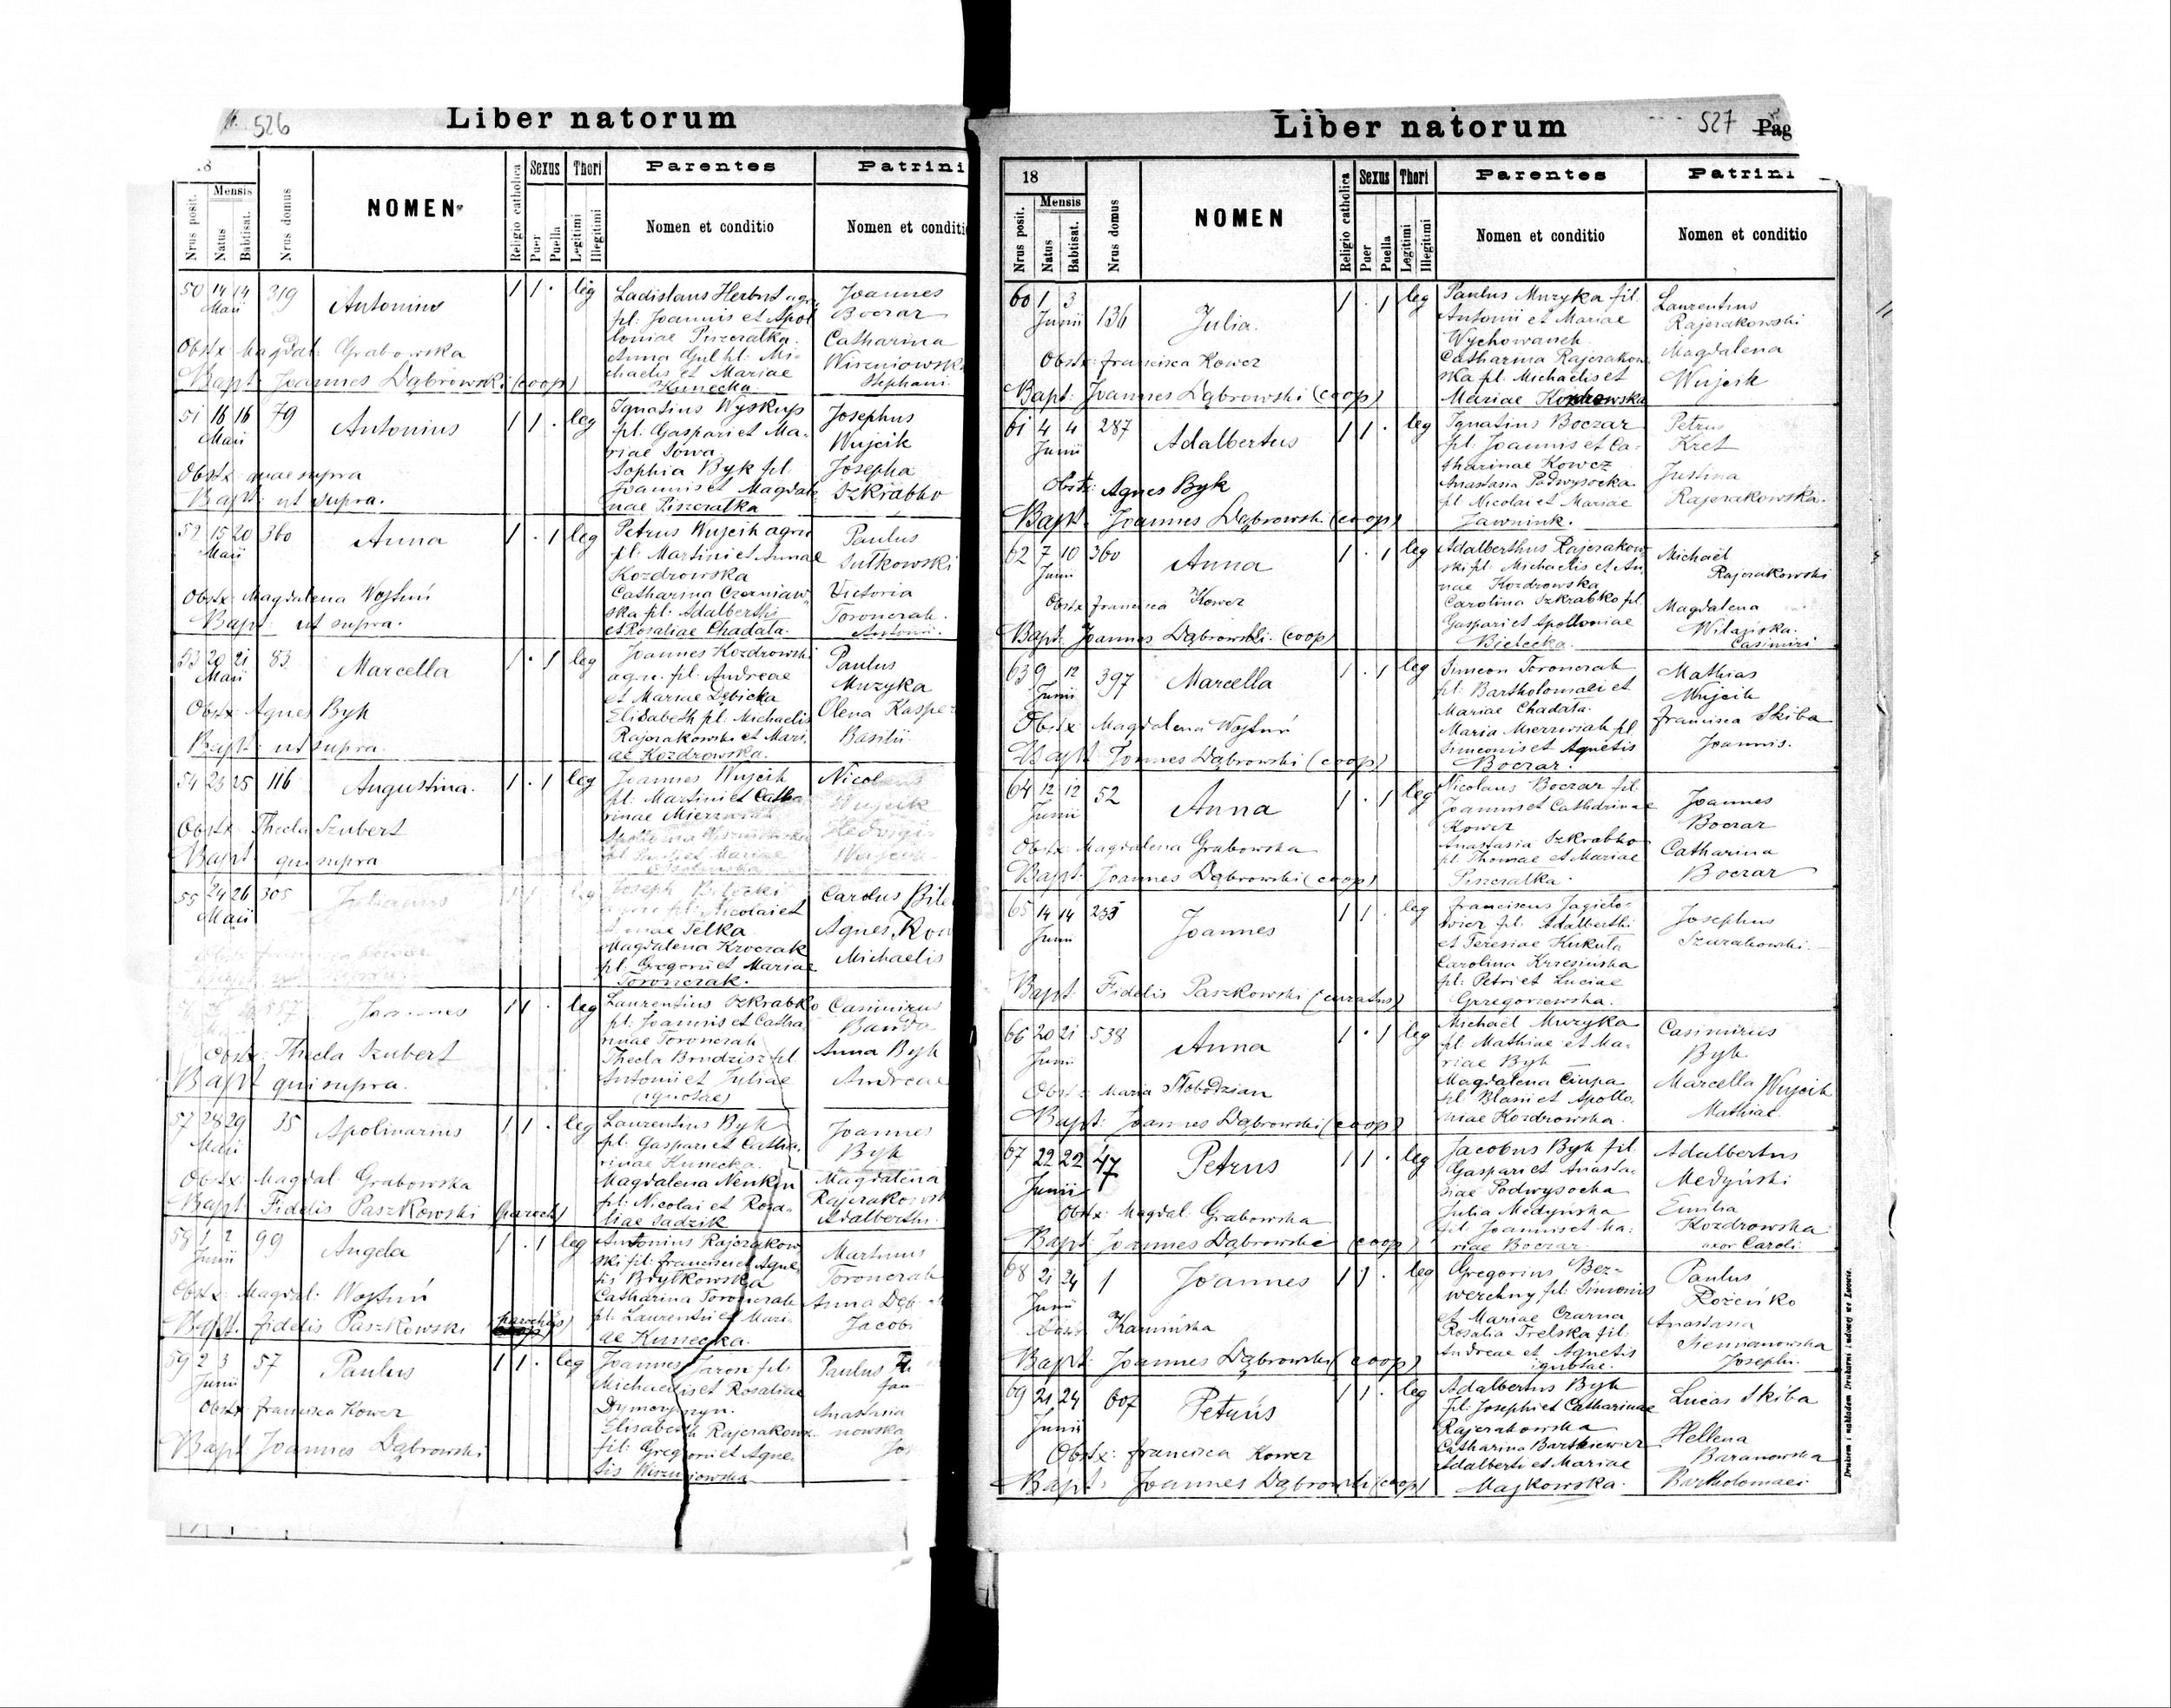 526
Liber natorum
Nrus posit.
Mensis
Natus
Babtisat.
Nrus domus
NOMEN
Religio catholica
Sexus
Puer
Puella
Thori
Legitimi
Illegitimi
Parentes
Nomen et conditio
Patrini
Nomen et conditi
50 14 14 319 Antonius 1 1 . leg
Maii
Ladislaus Herbut agr.
fil: Joannis et Apol
loniae Piszczatka.
Anna Gul fil: Mi-
chaelis et Mariae
Kunecka.
Joannes
Boczar
Catharina
Wiszniowsk
Stephani.
Obstx: Magdal: Grabowska
Bapt: Joannes Dąbrowski (coop)
51 16 16 79 Antonius 1 1 . leg
Maii
Ignatius Wyskup
fil. Gaspari et Ma-
riae Sowa
Sophia Byk fil
Joannis et Magdale
nae Piszczatka
Josephus
Wujcik
Josepha
Szkrabko
Obstx: quae supra
Bapt: ut supra.
52 15 20 360 Anna 1 . 1 leg
Maii
Petrus Wujcik agric
fil. Martini et Annae
Kozdrowska
Catharina Czerniaw
ska fil. Adalberthi
et Rosaliae Chadata.
Paulus
Sutkowski
Victoria
Toronczak.
Antonii.
Obstx: Magdalena Wojtuń
Bapt: ut supra.
53 20 21 83 Marcella 1 . 1 leg
Maii
Joannes Kozdrowski
agric. fil. Andreae
et Mariae Dębicka
Elisabeth fil. Michaelis
Rajczakowski et Mari.
ae Kozdrowska.
Paulus
Muzyka
Olena Kasper
Basilii
Obstx: Agnes Byk
Bapt: ut supra.
54 23 25 116 Augustina. 1 . 1 leg
Joannes Wujcik
fil. Martini et Catha
rinae Mierzwiak
Nicol
Wujcik
Hedvigi
Wujcik
Obstx: Thecla Szubert
Bapt: qui supra
55 24 26 305 Julianus 1 1 . leg
Maii
Joseph Bilecki
agric fil. Nicolai et
Annae Telka
Magdalena Kroczak
fil. Gregorii et Mariae
Toronczak.
Carolus Bile
Agnes Kow
Michaelis
Obstx: Francisca Kowcz
Bapt ut supra
557 Joannes 1 1 . leg
Laurentius Szkrabko
fil. Joannis et Catha
rinae Toronczak
Thecla Brudzisz fil
Antonii et Juliae
(ignotae)
Casimirus
Banda
Anna Byk
Andreae
Obstx: Thecla Szubert
Bapt qui supra.
57 28 29 35 Apolinarius 1 1 . leg
Maii
Laurentius Byk
fil. Gaspari et Catha-
rinae Kunecka.
Magdalena Nenkin
fil. Nicolai et Rosa-
liae Sadzik
Joannes
Byk
Magdalena
Rajczakowsk
Adalberthi.
Obstx: Magdal. Grabowska
Bapt: Fidelis Paszkowski (paroch)
58 1 2 99 Angela 1 . 1 leg
Junii
Antonius Rajczakow
ski fil. Francisci et Agne-
tis Brytkowska
Catharina Toronczak
fil. Laurentii et Mari-
ae Kunecka.
Martinus
Toronczak
Anna Dęb
Jacobi
Obstx: Magdal: Wojtuń
Bapt. Fidelis Paszkowski (parochus)
59 2 3 57 Paulus 1 1 . leg
Junii
Joannes Jaron fil.
Michaelis et Rosaliae
Elisabeth Rajczakow
fil: Gregorii et Agne-
tis Wiszniowska
Paulus
Anastasia
nowska
Obstx: Francisca Kowcz
Bapt Joannes Dąbrowski
Liber natorum
527 Pag
18
Nrus posit.
Mensis
Natus
Babtisat.
Nrus domus
NOMEN
Religio catholica
Sexus
Puer
Puella
Thori
Legitimi
Illegitimi
Parentes
Nomen et conditio
Patrini
Nomen et conditio
60 1 3 136 Julia. 1 . 1 leg
Junii
Paulus Muzyka fil.
Antonii et Mariae
Wychowanek
Catharina Rajczakow
ska fil. Michaelis et
Mariae Kozdrowska
Laurentius
Rajczakowski
Magdalena
Wujcik
Obstx: Francisca Kowcz
Bapt: Joannes Dąbrowski (coop)
61 4 4 287 Adalbertus 1 1 . leg
Junii
Ignatius Boczar
fil. Joannis et Ca-
tharinae Kowcz
Anastasia Podwysocka.
fil Nicolai et Mariae
Jawnink.
Petrus
Kret
Justina
Rajczakowska.
Obstx: Agnes Byk
Bapt. Joannes Dąbrowski (coop)
62 7 10 360 Anna 1 . 1 leg
Junii
Adalberthus Rajczakow
ski fil. Michaelis et An
nae Kozdrowska
Carolina Szkrabko fil.
Gaspari et Apolloniae
Bielecka.
Michael
Rajczakowski
Magdalena
Wilańska.
Casimiri
Obstx Francisca Kowcz
Bapt: Joannes Dąbrowski. (coop)
63 9 12 397 Marcella 1 . 1 leg
Junii
Simeon Toronczak
fil. Bartholomaei et
Mariae Chadata.
Maria Mierzwiak fil.
Simeonis et Agnetis
Boczar.
Mathias
Wujcik
Francisca Skiba
Joannis.
Obstx: Magdalena Wojtuń
Bapt Joannes Dąbrowski (coop)
64 12 12 52 Anna 1 . 1 leg
Junii
Nicolaus Boczar fil.
Joannis et Catharinae
Kowcz
Anastasia Szkrabko
fil. Thomae et Mariae
Piszczatka.
Joannes
Boczar
Catharina
Boczar
Obstx: Magdalena Grabowska
Bapt: Joannes Dąbrowski (coop)
65 14 14 255 Joannes 1 1 . leg
Junii
Franciscus Jagieto-
wicz fil. Adalberthi
et Teresiae Kukuta
Carolina Krzesińska
fil. Petri et Luciae
Grzegorzewska.
Josephus
Szurakowski.
Bapt: Fidelis Paszkowski (curatus)
66 20 21 538 Anna 1 . 1 leg
Junii
Michael Muzyka
fil. Mathiae et Ma-
riae Byk
Magdalena Ciupa
fil Blasii et Apollo.
niae Kozdrowska.
Casimirus
Byk
Marcella Wujcik
Mathiae
Obstx: Maria Słobodzian
Bapt: Joannes Dąbrowski (coop)
67 22 22 47 Petrus 1 1 . leg
Junii
Jacobus Byk fil.
Gaspari et Anasta-
siae Podwysocka
Julia Medyńska
fil. Joannis et Ma-
riae Boczar.
Adalbertus
Medyński
Emilia
Kozdrowska
uxor Caroli.
Obstx: Magdal. Grabowska
Bapt: Joannes Dąbrowski (coop)
68 21 24 1 Joannes 1 1 . leg
Junii
Gregorius Bez-
werchny fil. Simonis
et Mariae Czarna
Rosalia Trelska fil.
Andreae et Agnetis
ignotae.
Paulus
Rożeńko
Anastasia
Siemianowska
Josephi.
Obstx Kamińska
Bapt: Joannes Dąbrowski (coop)
69 21 24 607 Petrus 1 1 . leg
Junii
Adalbertus Byk
fil. Josephi et Catharinae
Rajczakowska
Catharina Bartkiewicz
Adalberti et Mariae
Majkowska.
Lucas Skiba
Hellena
Baranowska
Bartholomaei
Obstx: Francisca Kowcz
Bapt: Joannes Dąbrowski (coop)
Drukiem i nakładem Drukarni Ludowej we Lwowie.